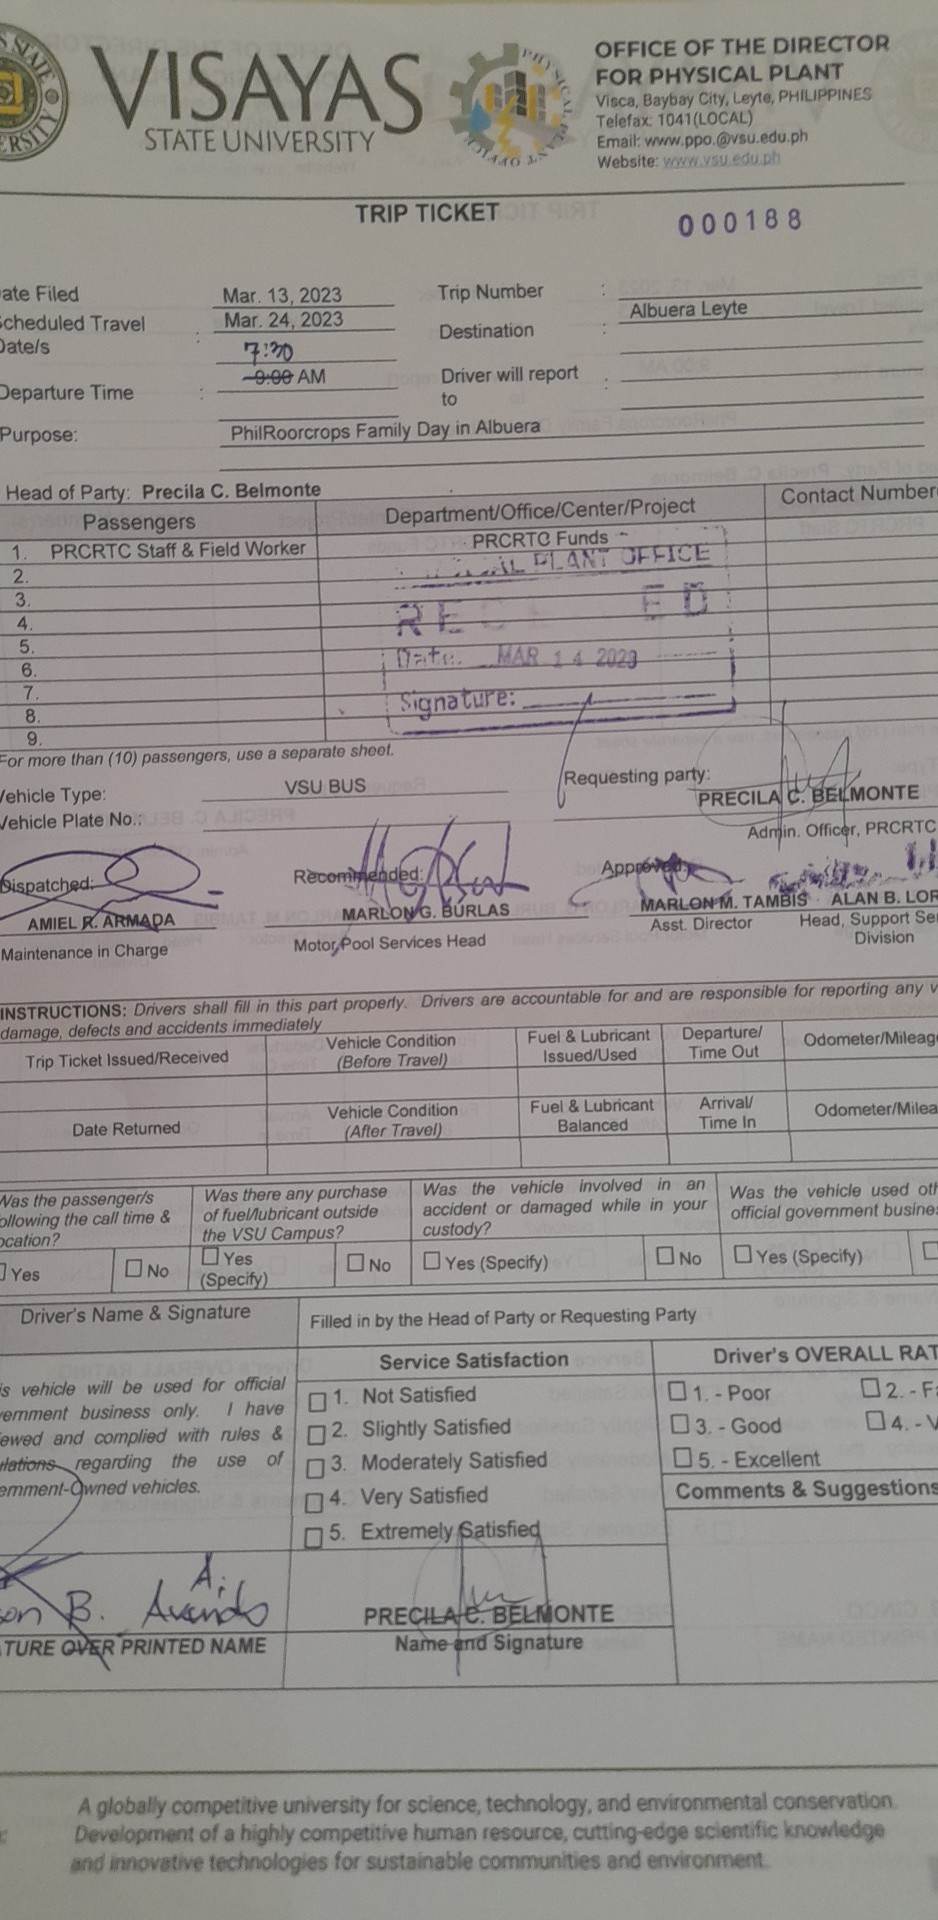 VISAYAS
STATE UNIVERSITY
OFFICE OF THE DIRECTOR
FOR PHYSICAL PLANT
Visca, Baybay City, Leyte, PHILIPPINES
Telefax: 1041(LOCAL)
Email: www.ppo.@vsu.edu.ph
Website: www.vsu.edu.ph
TRIP TICKET
000188
ate Filed Mar. 13, 2023 Trip Number :
cheduled Travel Date/s : Mar. 24, 2023 Destination : Albuera Leyte
7:30
Departure Time : 9:00 AM Driver will report to :
Purpose: PhilRoorcrops Family Day in Albuera
Head of Party: Precila C. Belmonte
Passengers Department/Office/Center/Project Contact Number
1. PRCRTC Staff & Field Worker PRCRTC Funds
2.
3.
4.
5.
6.
7.
8.
9.
PLANT OFFICE
Date: MAR 14 2023
Signature:
For more than (10) passengers, use a separate sheet.
Vehicle Type: VSU BUS Requesting party:
PRECILA C. BELMONTE
Vehicle Plate No.:
Admin. Officer, PRCRTC
Dispatched: Recommended: Approved:
AMIEL R. ARMADA MARLON G. BURLAS MARLON M. TAMBIS ALAN B. LOR
Maintenance in Charge Motor Pool Services Head Asst. Director Head, Support Se
Division
INSTRUCTIONS: Drivers shall fill in this part properly. Drivers are accountable for and are responsible for reporting any v
damage, defects and accidents immediately
Trip Ticket Issued/Received Vehicle Condition (Before Travel) Fuel & Lubricant Issued/Used Departure/ Time Out Odometer/Mileag
Date Returned Vehicle Condition (After Travel) Fuel & Lubricant Balanced Arrival/ Time In Odometer/Milea
Was the passenger/s ollowing the call time & ocation?
Was there any purchase of fuel/lubricant outside the VSU Campus?
Was the vehicle involved in an accident or damaged while in your custody?
Was the vehicle used ot official government busine
Yes No Yes (Specify) No Yes (Specify) No Yes (Specify)
Driver's Name & Signature Filled in by the Head of Party or Requesting Party
Service Satisfaction Driver's OVERALL RAT
is vehicle will be used for official
vernment business only. I have
ewed and complied with rules &
ulations regarding the use of
ernment-Owned vehicles.
1. Not Satisfied
2. Slightly Satisfied
3. Moderately Satisfied
4. Very Satisfied
5. Extremely Satisfied
1. - Poor 2. - F
3. - Good 4. - V
5. - Excellent
Comments & Suggestions
PRECILA C. BELMONTE
ATURE OVER PRINTED NAME Name and Signature
A globally competitive university for science, technology, and environmental conservation.
Development of a highly competitive human resource, cutting-edge scientific knowledge
and innovative technologies for sustainable communities and environment.